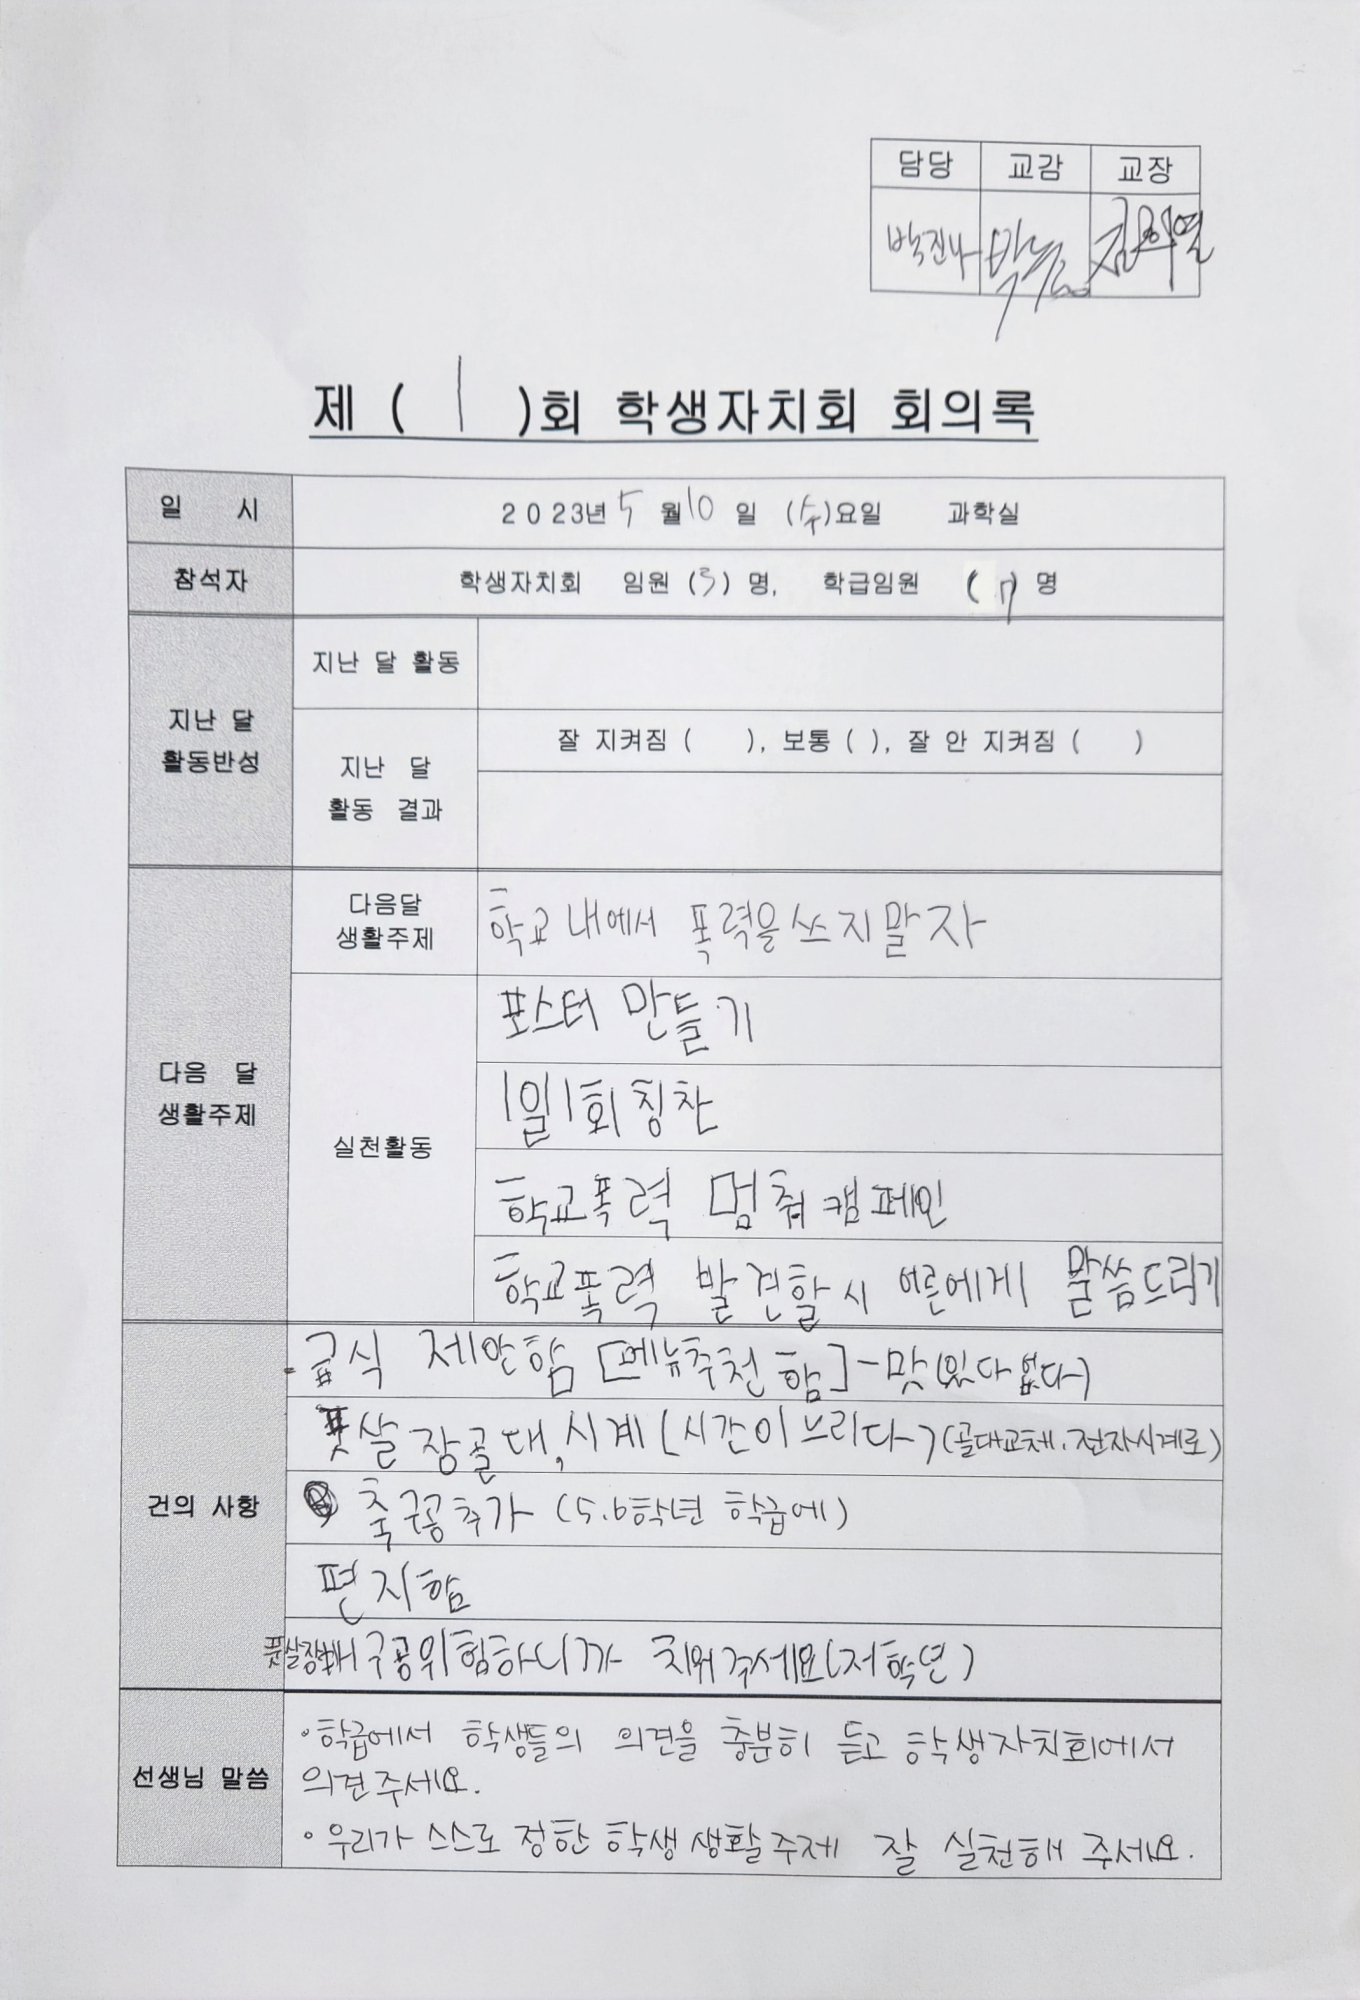 담당 교감 교장
박진나
제 ( 1 )회 학생자치회 회의록
일 시 2023년 5월 10일 (수)요일 과학실
참석자 학생자치회 임원 (3) 명, 학급임원 (7) 명
지난 달 활동반성
지난 달 활동
지난 달 활동 결과
잘 지켜짐 ( ), 보통 ( ), 잘 안 지켜짐 ( )
다음 달 생활주제
다음달 생활주제
학교 내에서 폭력을 쓰지말자
실천활동
포스터 만들기
1일 1회 칭찬
학교폭력 멈춰 캠페인
학교폭력 발견할 시 어른에게 말씀드리기
건의 사항
급식 제안함 [메뉴추천 함] - 맛(있다 없다)
풋살장골대, 시계 [시간이 느리다] (골대교체, 전자시계로)
축구공 추가 (5.6학년 학급에)
편지함
풋살장에서 구공위험하니까 치워주세요(저학년)
선생님 말씀
• 학급에서 학생들의 의견을 충분히 듣고 학생자치회에서
의견주세요.
• 우리가 스스로 정한 학생 생활주제 잘 실천해 주세요.